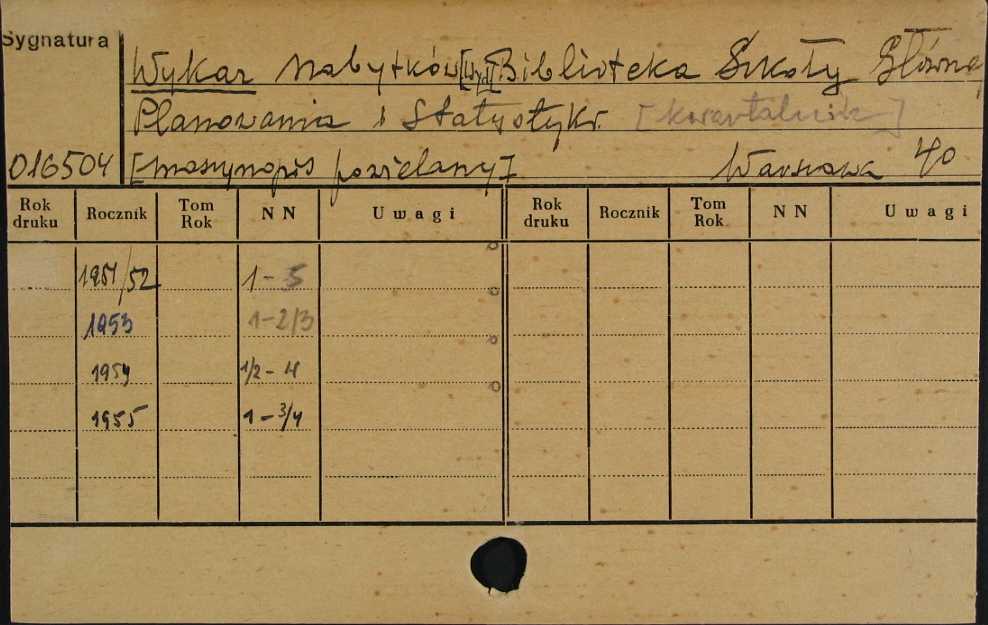 Sygnatura
Wykaz Nabytków [Wyd] Biblioteka Szkoły Główne
Planowania i Statystyki. [kwartalnik]
016504 [maszynopis powielany] Warszawa 40
Rok druku Rocznik Tom Rok N N Uwagi Rok druku Rocznik Tom Rok N N Uwagi
1951/52 1-5
1953 1-2/3
1954 1/2-4
1955 1-3/4